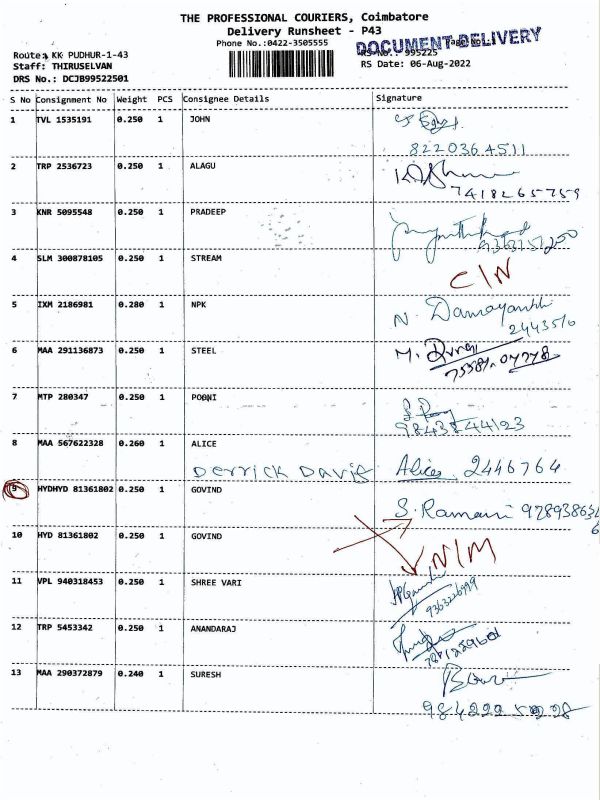 THE PROFESSIONAL COURIERS, Coimbatore
Delivery Runsheet - P43
Phone No.:0422-3505555
DOCUMENT DELIVERY
Route: KK PUDHUR-1-43
RS No.: 995225
Staff: THIRUSELVAN
RS Date: 06-Aug-2022
DRS No.: DCJB99522501
S No Consignment No Weight PCS Consignee Details Signature
1 TVL 1535191 0.250 1 JOHN
8220364511
2 TRP 2536723 0.250 1 ALAGU
7418265759
3 KNR 5095548 0.250 1 PRADEEP
4 SLM 300878105 0.250 1 STREAM
C/N
5 IXM 2186981 0.280 1 NPK
N. Damayanthi
2443570
6 MAA 291136873 0.250 1 STEEL
M. Durai
75581-04778
7 MTP 280347 0.250 1
9843844123
8 MAA 567622328 0.260 1 ALICE
Derrick Davis Alices 2446764
9 HYDHYD 81361802 0.250 1 GOVIND
S. Ramani
10 HYD 81361802 0.250 1 GOVIND
N/M
11 VPL 940318453 0.250 1 SHREE VARI
9363226999
12 TRP 5453342 0.250 1 ANANDARAJ
13 MAA 290372879 0.240 1 SURESH